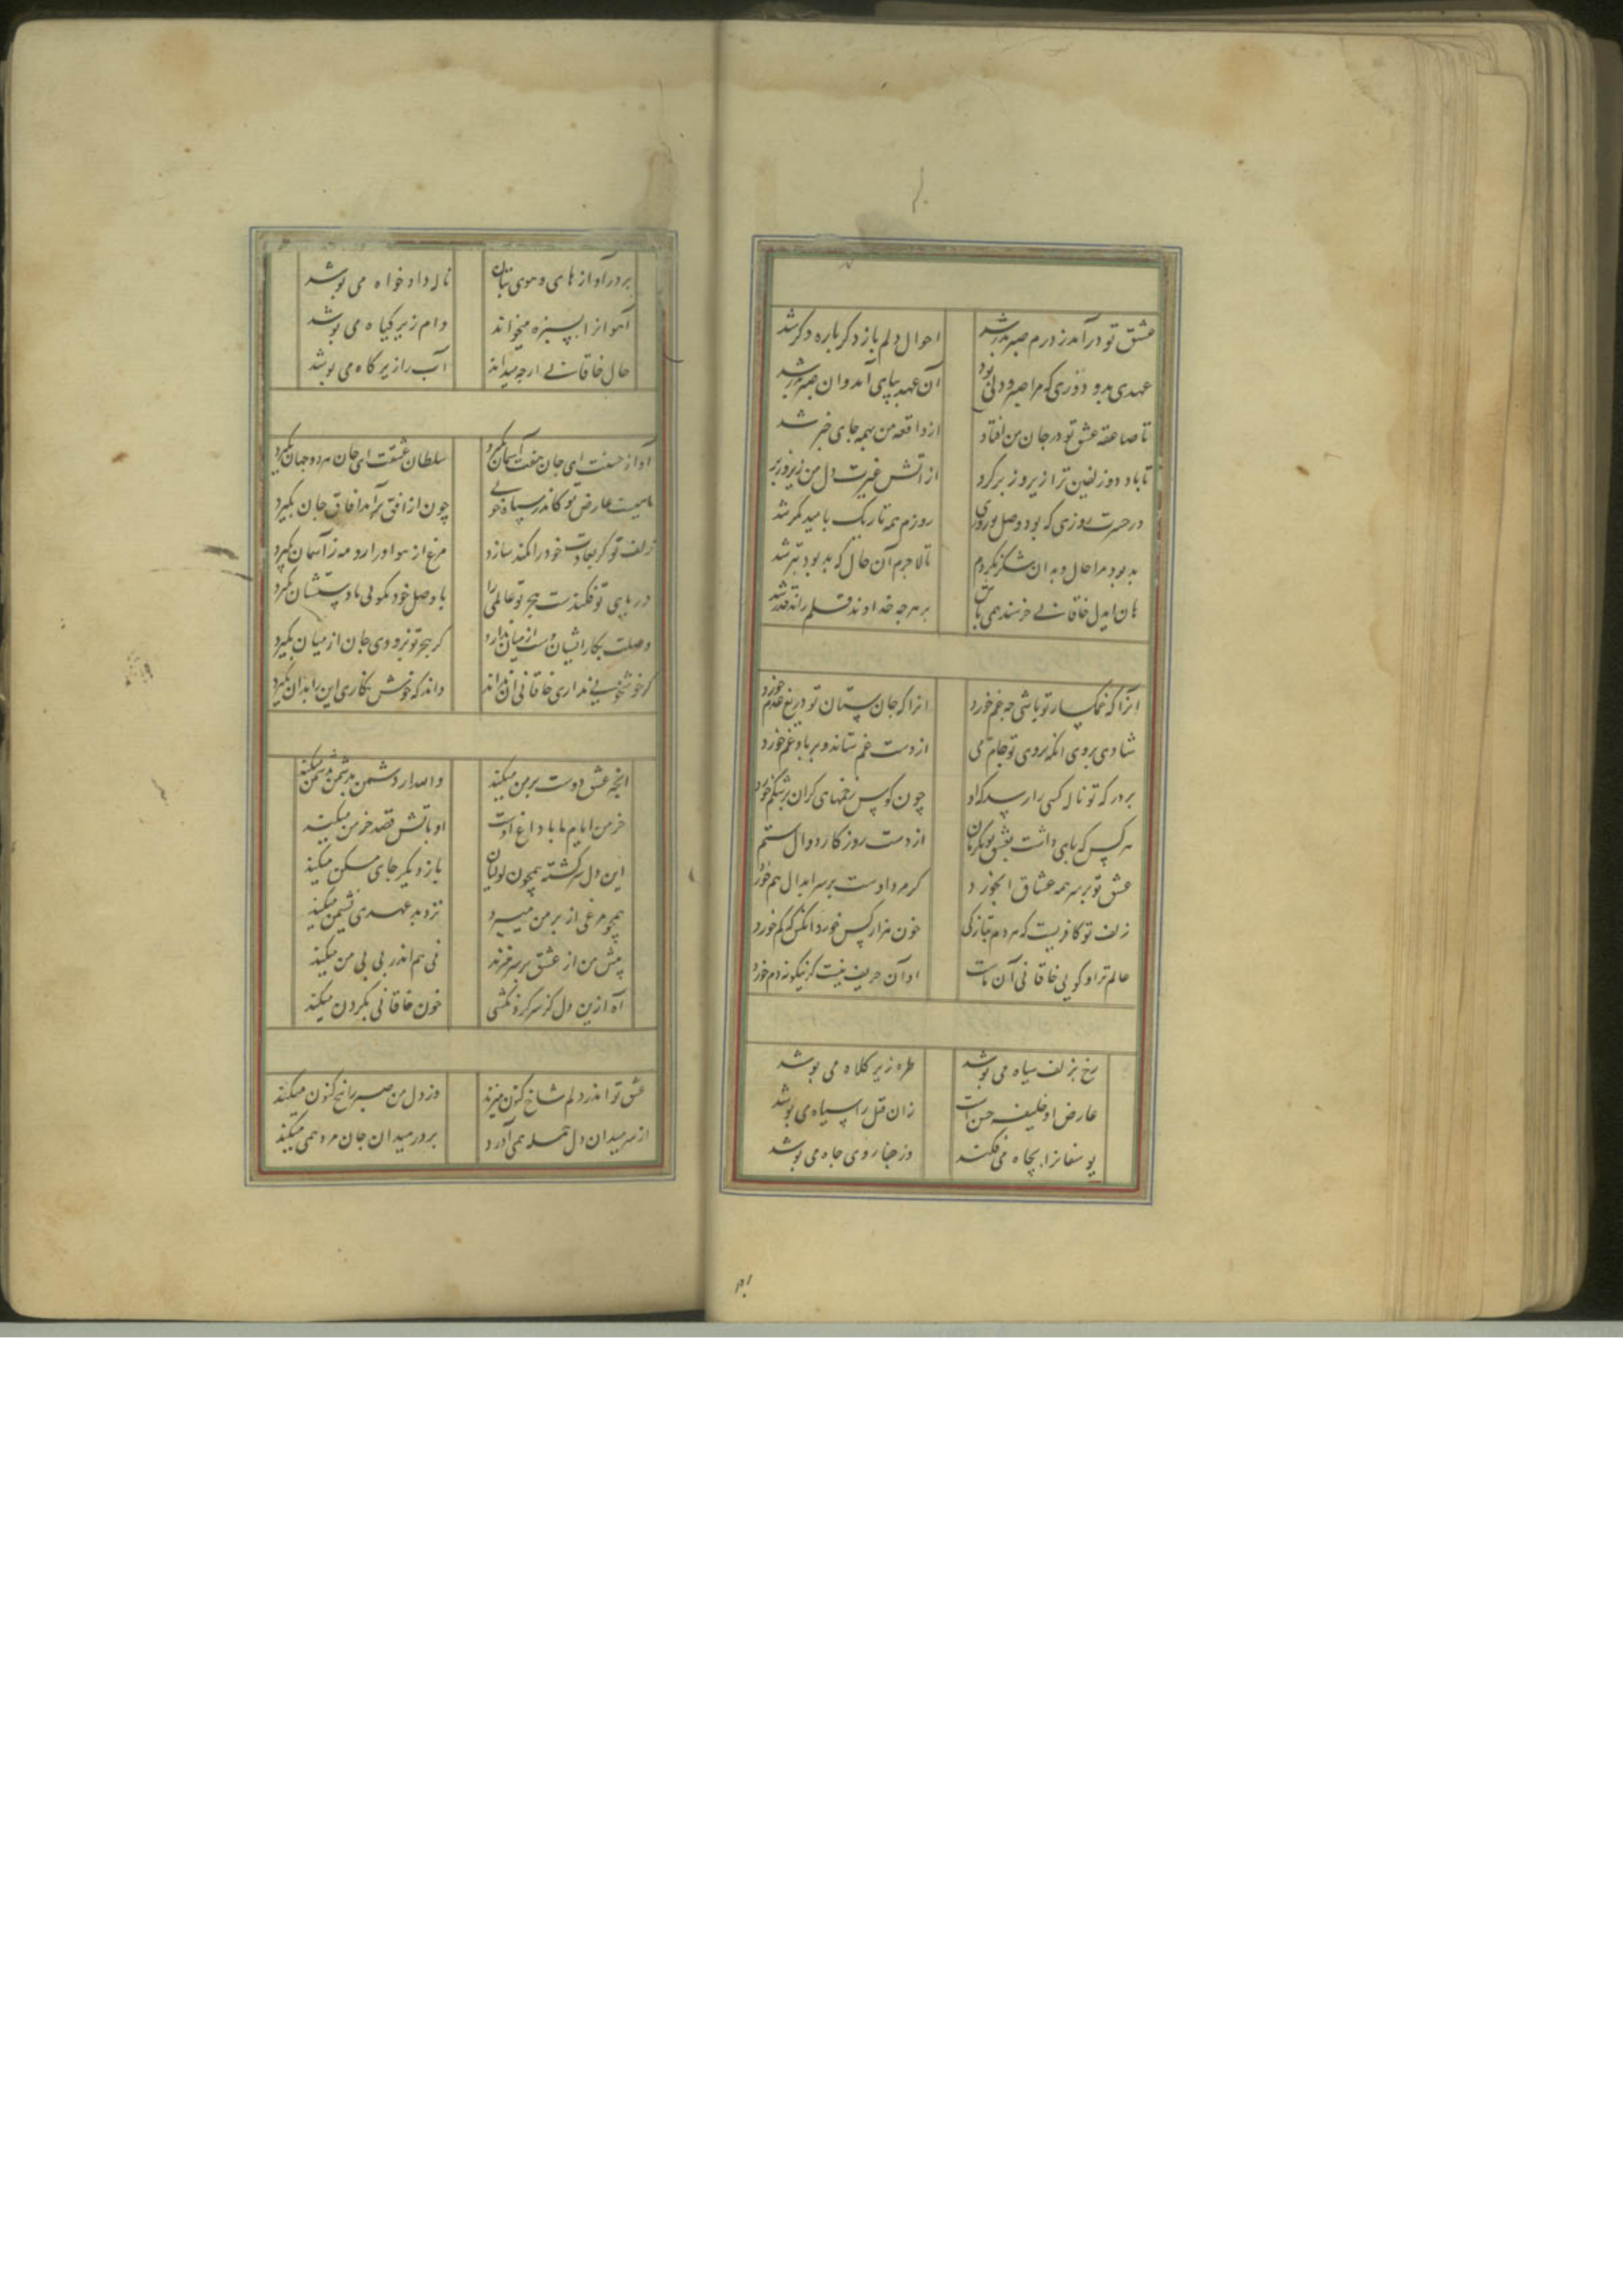 عشق تو درآمد ز درم صبر بدر شد
احوال دلم باز دکر باره دکر شد
عهدی بد و دوری که مرا صبر و دلی بود
آن عهد بپای آمد و ان صبر بدر شد
تا صاعقه عشق تو در جان من افتاد
از واقعه من همه جای خبر شد
تا باد دو زلفین ترا زیر و زبر کرد
از اتش غیرت دل من زیر و زبر
در حسرت روزی که بود وصل تو روزی
روزم همه تاریک بامید مکر شد
بد بود مرا حال و بدان شکر نکردم
تا لاجرم آن حال که بد بود بتر شد
هان ایدل خاقانی خرسند همی باش
بر هرچه خداوند قلم راند قدر شد
انرا که غمکسار تو باشی چه غم خورد
انرا که جان ستان تو دریغ عدم خورد
شادی بروی انکه بروی تو جام می
از دست غم ستاند و بر یاد غم خورد
بر درکه تو ناله کسی را رسد که او
چون کوس زخمهای کران بر شکم خورد
هر کس که پای داشت بعشق تو بکزمان
از دست روزکار دوال ستم
عشق تو بر سر همه عشاق ابخورد
کر مرد اوست بر سر ابدال هم خورد
زلف تو کافریست که هر دم بتازکی
خون هزار کس خورد انکس که کم خورد
عالم تراو کویی خاقانی آن ماست
او آن حریف نیست کزینکونه دم خورد
رخ بزلف سیاه می پوشد
طره زیر کلاه می پوشد
عارض او خلیفه حسن است
زان قبل را سیاه می پوشد
یوسفانرا بچاه می فکند
وز جفا روی چاه می پوشد
بردر آواز های و هوی بتان
ناله دادخواه می پوشد
آهوانرا بسبزه میخواند
دام زیر کیاه می پوشد
حال خاقانی ارچه میداند
آب را زیر کاه می پوشد
آواز حسنت ای جان هفت آسمان بگیرد
سلطان عشقت ای جان هر دو جهان بگیرد
عارض تو کاندر سپاه خوبی
چون از افق برآمد افاق جان بگیرد
زلف تو کر بعادت خود را کمند سازد
مرغ از هوا در ارد مه ز آسمان بگیرد
در پای تو فکندست هجر تو عالمی را
با وصل خود نکویی تا دستشان بگیرد
وصلت بکار ایشان دست از میان ندارد
کر هجر تو بزودی جان از میان بگیرد
کر خوشخویی نداری خاقانی آن نداند
داند که خوش نکاری این را بدان بگیرد
انچه عشق دوست بر من میکند
والله ار دشمن بدشمن میکند
خرمن ایام ما با داغ اوست
او باتش قصد خرمن میکند
این دل سرکشته همچون لولیان
باز دیکر جای مسکن میکند
همچو مرغی از بر من میپرد
نزد بد عهدی نشیمن میکند
پیش من از عشق بر سر میزند
نی هم اندر پی پی من میکند
آه ازین دل کز سر کردنکشی
خون خاقانی بکردن میکند
عشق تو اندر دلم شاخ کنون میزند
وز دل من صبر را بیخ کنون میکند
از سر میدان دل حمله همی آورد
بر در میدان جان مردهمی میکند